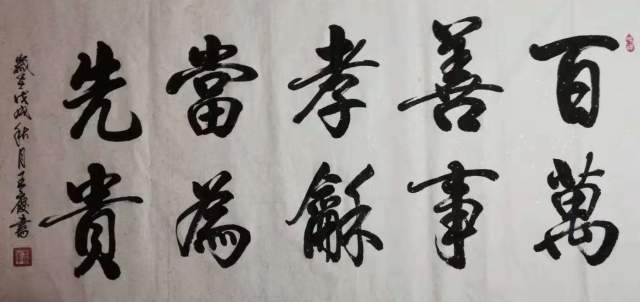 百萬
善事
孝龢
當為
先貴
歲在戊戌秋月王
書